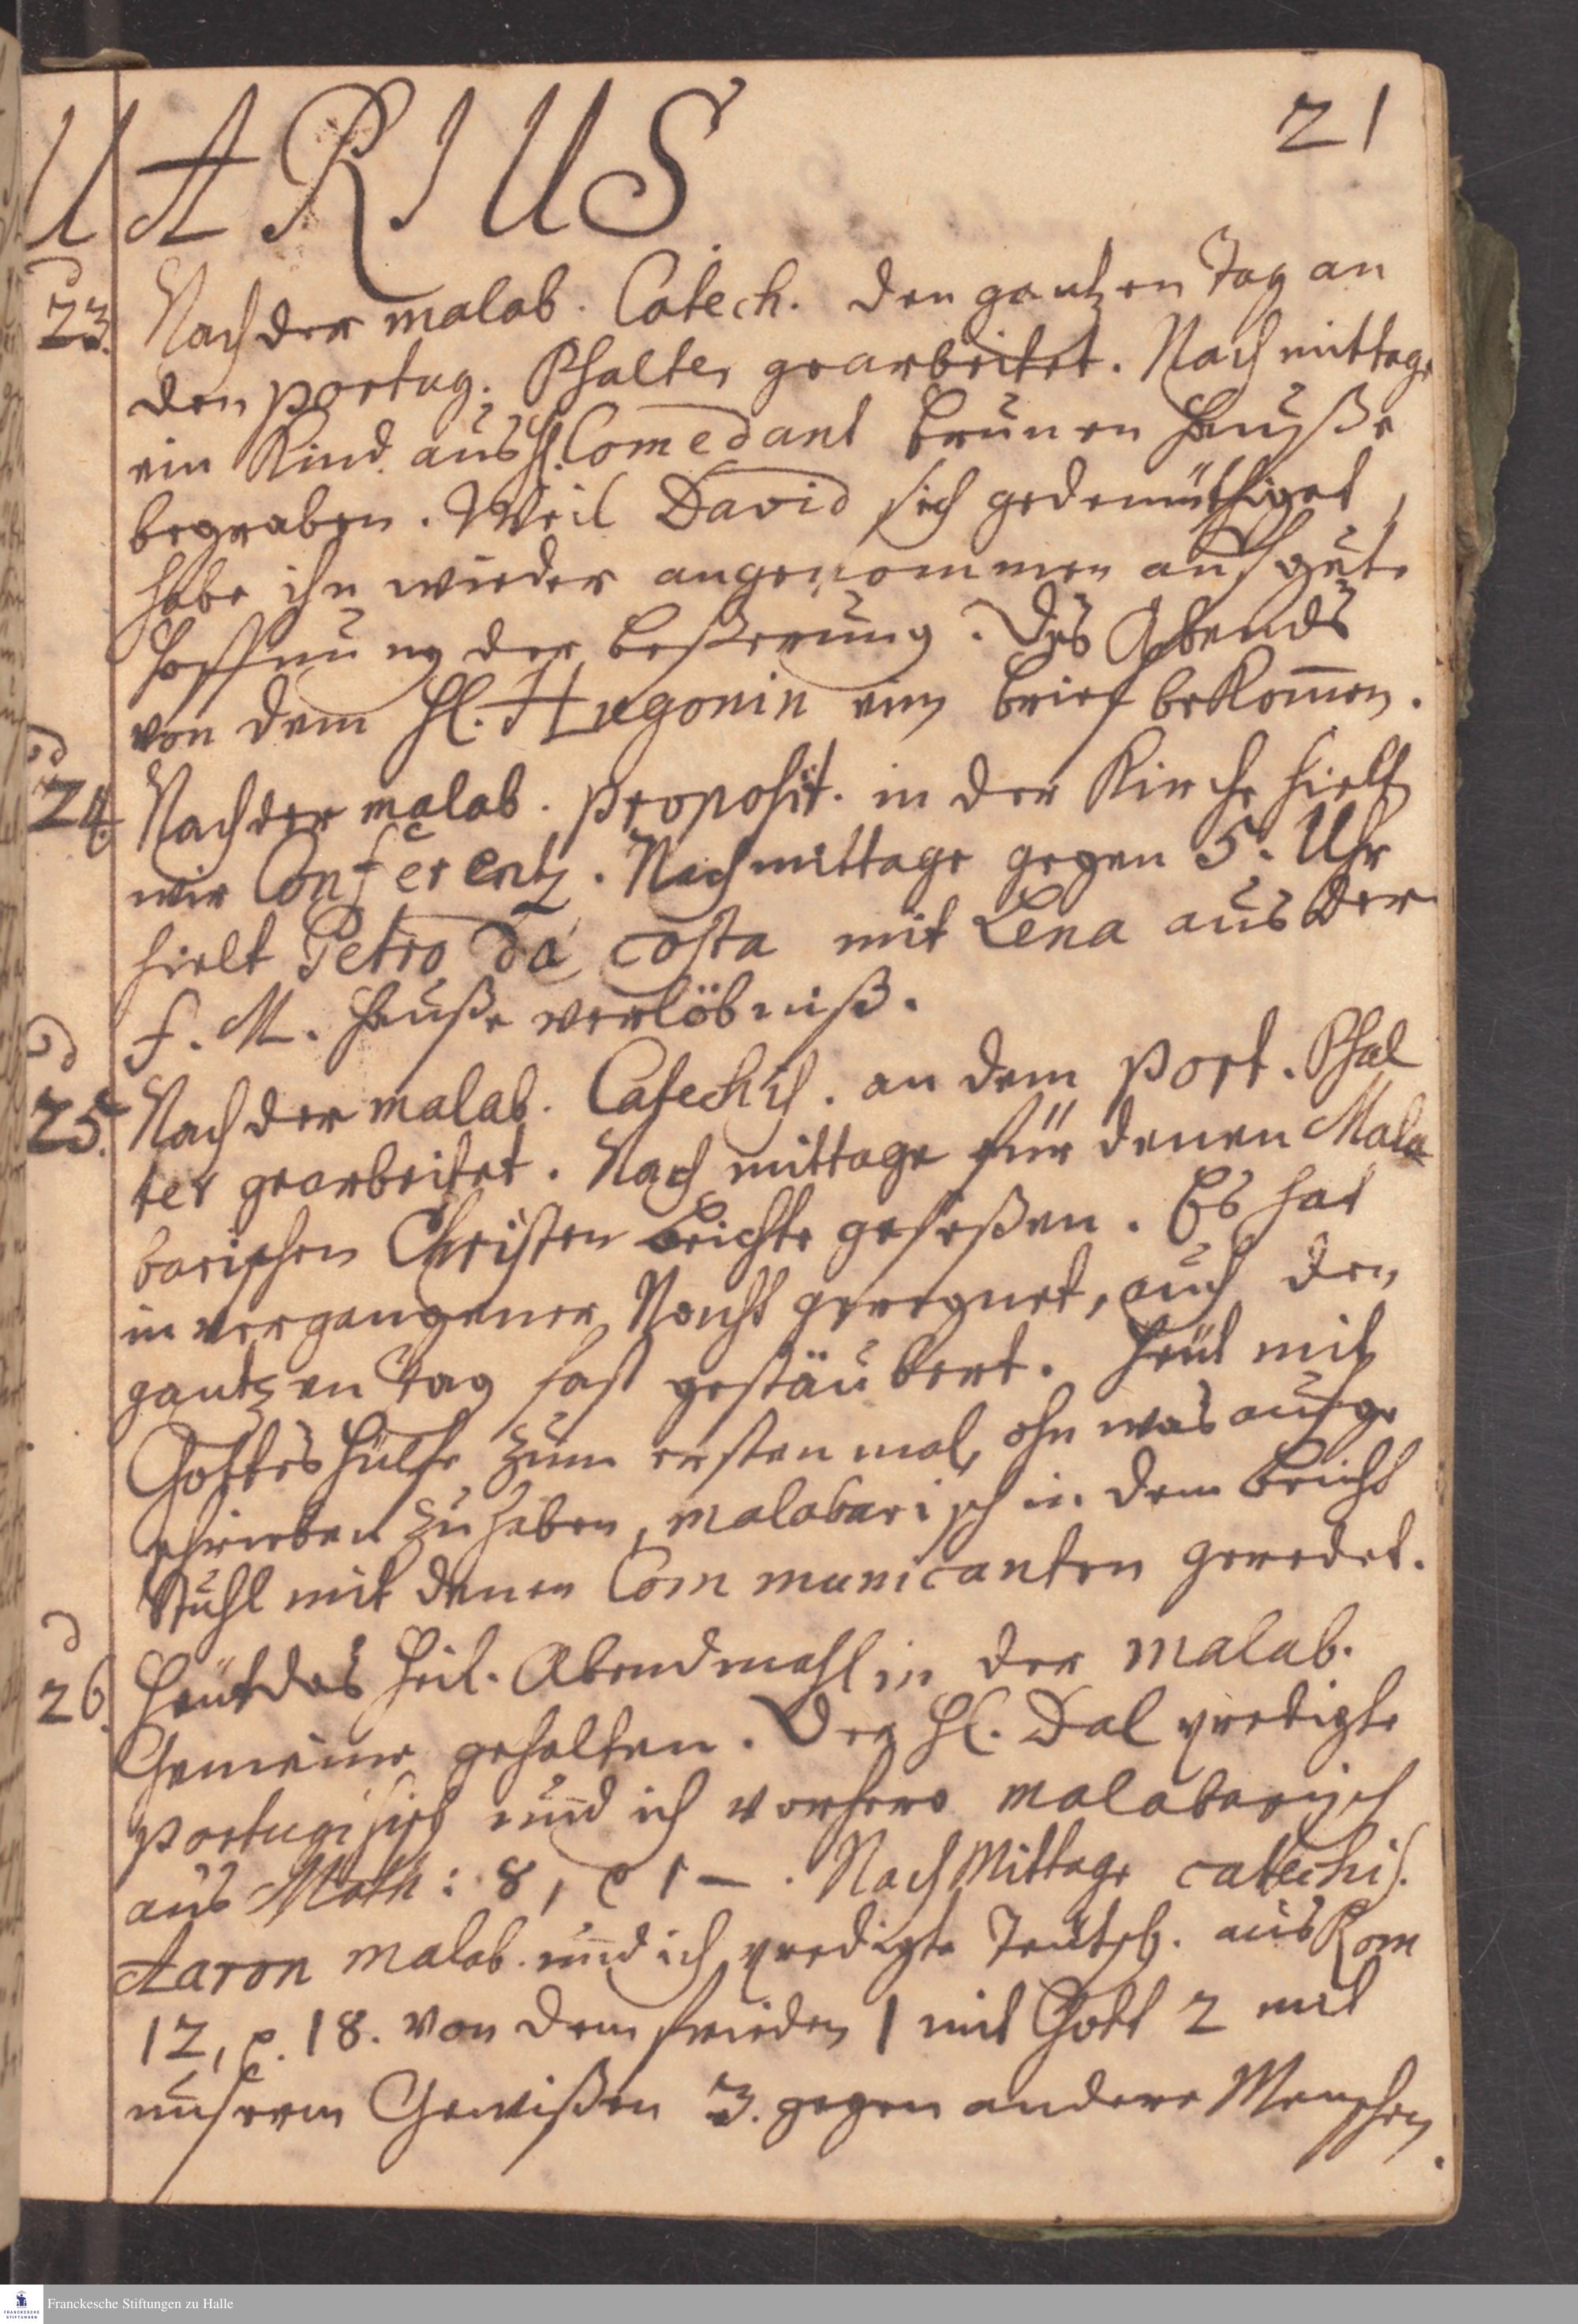 UARIUS
21
23. Nach der malab. Catech. den gantzen Tag an
den portug. Psalter gearbeitet. Nach mittage
ein Kind aus H. Comedant Brunen Hauße
begraben. Weil David sich gedemüthiget,
habe ihn wieder angenommen auf gute
Hoffnung der Beßerung. Des Abends
von dem Hl. Hugonin ein Brief bekommen.
24. Nach der malab. proposit. in der Kirche hielt
wir Conferentz. Nachmittage gegen 5. Uhr
hielt Petro da costa mit Lena aus der
f. M. Hauße verlöbniß.
25. Nach der malab. Catechis. an dem port. Psal
ter gearbeitet. Nach mittage für denen Mala
barischen Christen Beichte geseßen. Es hat
in vergangener Nacht geregnet, auch den
gantzen Tag fast gestäubert. Heut mit
Gottes Hülfe zum ersten mal, ohn was aufge
schrieben zu haben, malabarisch in dem Beicht
Stuhl mit denen Communicanten geredet.
26. Heut das Heil. Abendmahl in der malab.
Gemeine gehalten. Der Hl. Dal predigte
portugisisch und ich vorhero malabarisch
aus Math: 8, v 1 –. Nach Mittage catechis.
Aaron malab. und ich predigte Teutsch. aus Rom
12, v. 18. von dem frieden 1 mit Gott 2 mit
unserm Gewißen 3. gegen andere Menschen.
Franckesche Stiftungen zu Halle